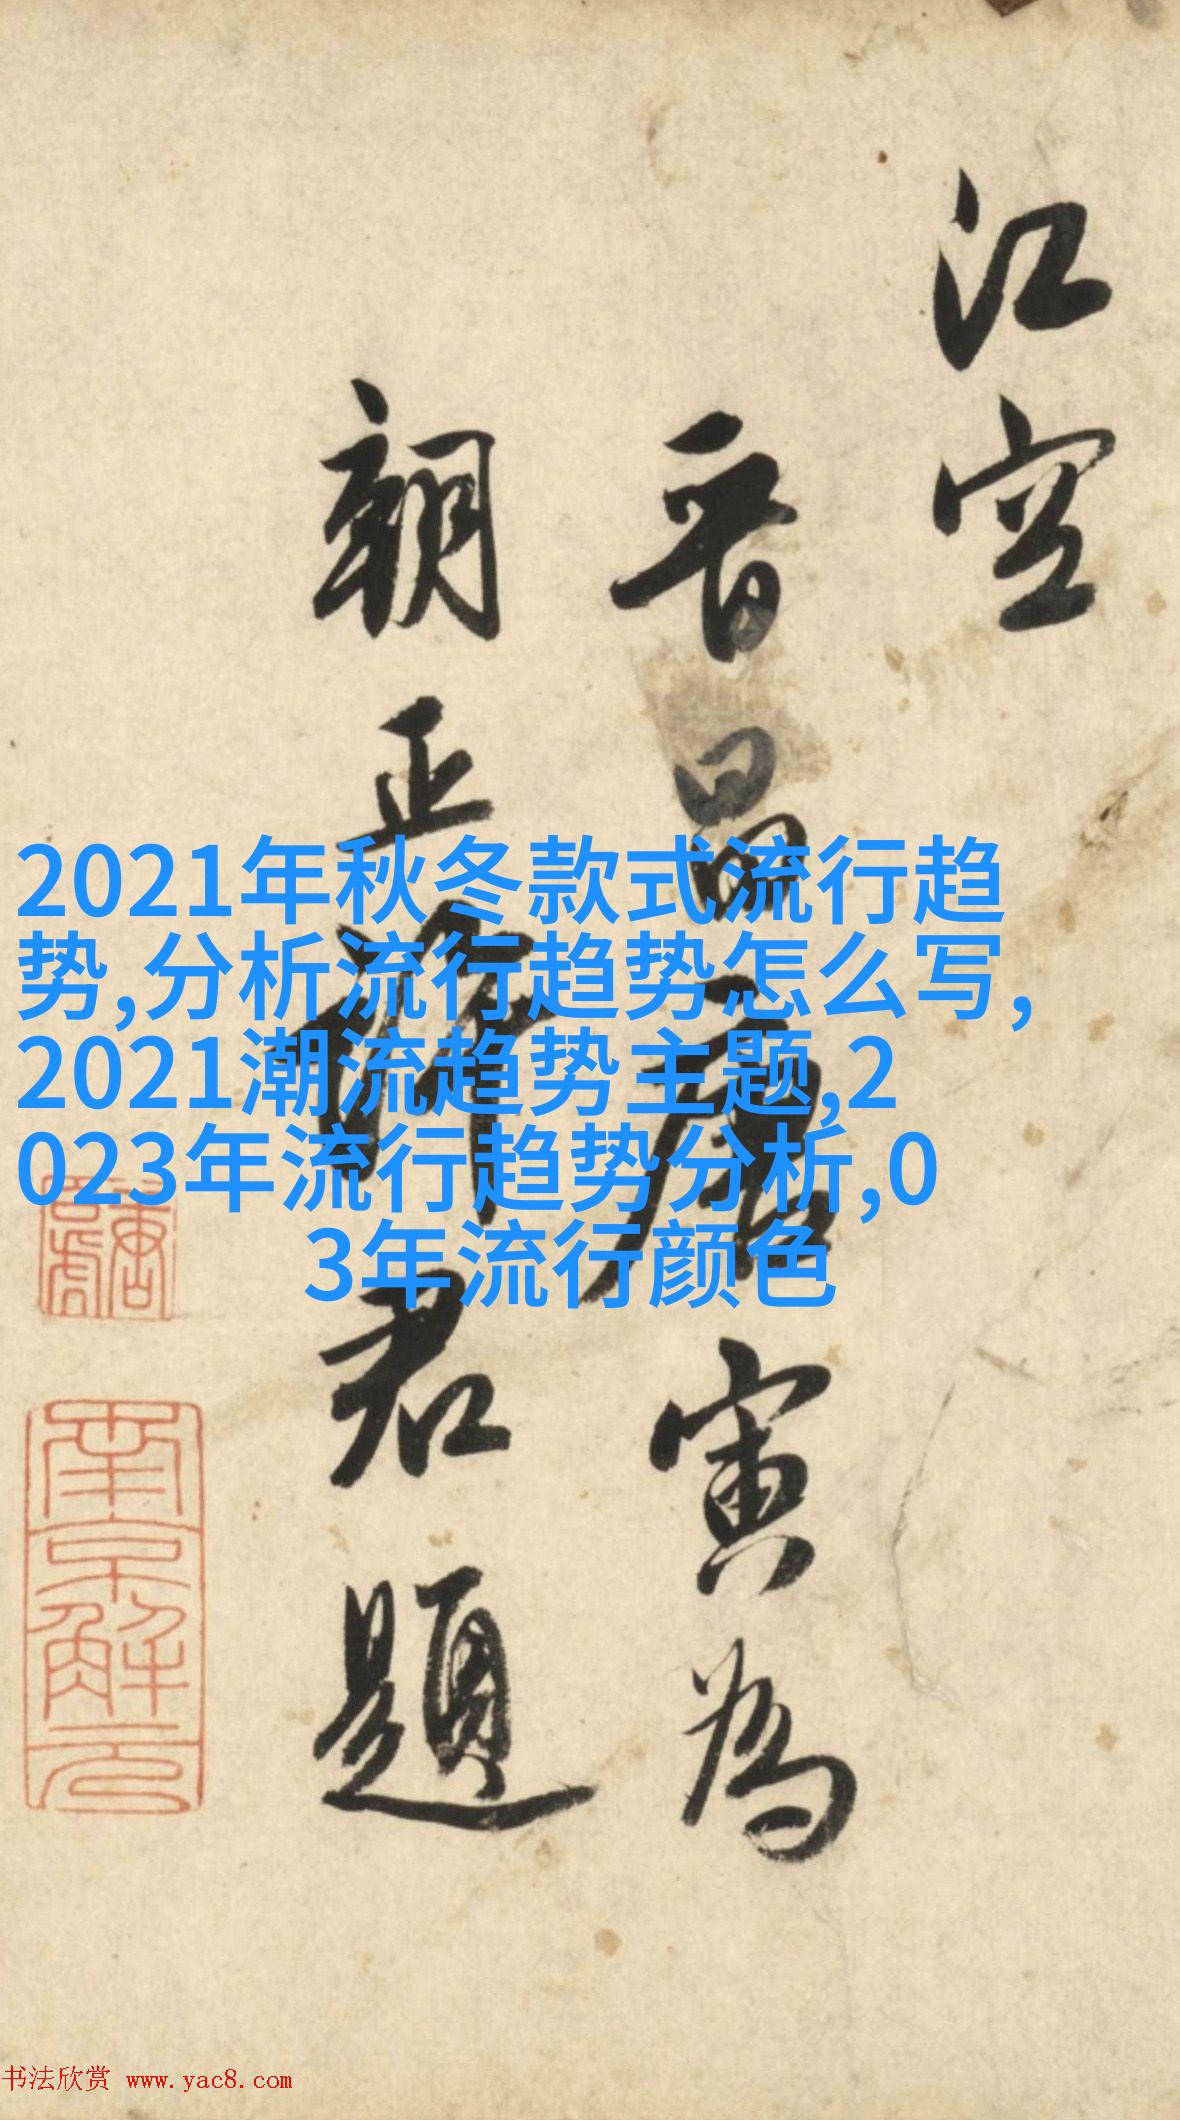 江空
晋昌唐寅為
朝正君題
唐伯虎
南京解元
2021年秋冬款式流行趋
势,分析流行趋势怎么写,
2021潮流趋势主题,2
023年流行趋势分析,0
3年流行颜色
书法欣赏 www.yac8.com